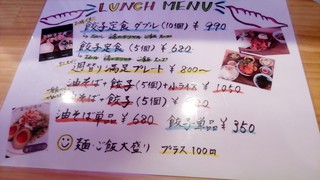 LUNCH MENU
餃子定食 ダブル(10個) ¥990
餃子定食 (5個) ¥680
週替り満足プレート ¥800〜
油そば+餃子(5個)+小ライス ¥1050
油そば+餃子(5個)
油そば単品 ¥680 餃子単品 ¥350
麺・ご飯大盛り プラス100円